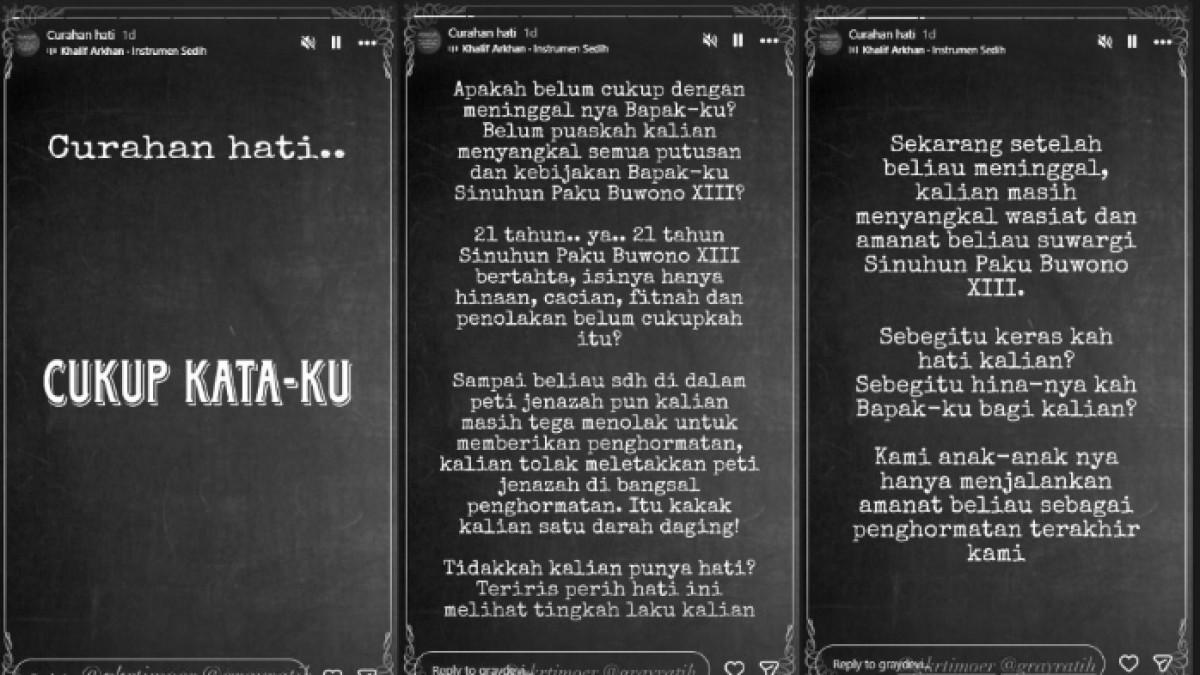 Curahan hati 1d
Khalif Arkhan · Instrumen Sedih
Curahan hati..
CUKUP KATA-KU
@gkrtimoer @grayratih
Curahan hati 1d
Khalif Arkhan · Instrumen Sedih
Apakah belum cukup dengan
meninggal nya Bapak-ku?
Belum puaskah kalian
menyangkal semua putusan
dan kebijakan Bapak-ku
Sinuhun Paku Buwono XIII?
21 tahun.. ya.. 21 tahun
Sinuhun Paku Buwono XIII
bertahta, isinya hanya
hinaan, cacian, fitnah dan
penolakan belum cukupkah
itu?
Sampai beliau sdh di dalam
peti jenazah pun kalian
masih tega menolak untuk
memberikan penghormatan,
kalian tolak meletakkan peti
jenazah di bangsal
penghormatan. Itu kakak
kalian satu darah daging!
Tidakkah kalian punya hati?
Teriris perih hati ini
melihat tingkah laku kalian
Reply to graydevi... krtimoer @grayratih
Curahan hati 1d
Khalif Arkhan · Instrumen Sedih
Sekarang setelah
beliau meninggal,
kalian masih
menyangkal wasiat dan
amanat beliau suwargi
Sinuhun Paku Buwono
XIII.
Sebegitu keras kah
hati kalian?
Sebegitu hina-nya kah
Bapak-ku bagi kalian?
Kami anak-anak nya
hanya menjalankan
amanat beliau sebagai
penghormatan terakhir
kami
Reply to graydevi... krtimoer @grayratih